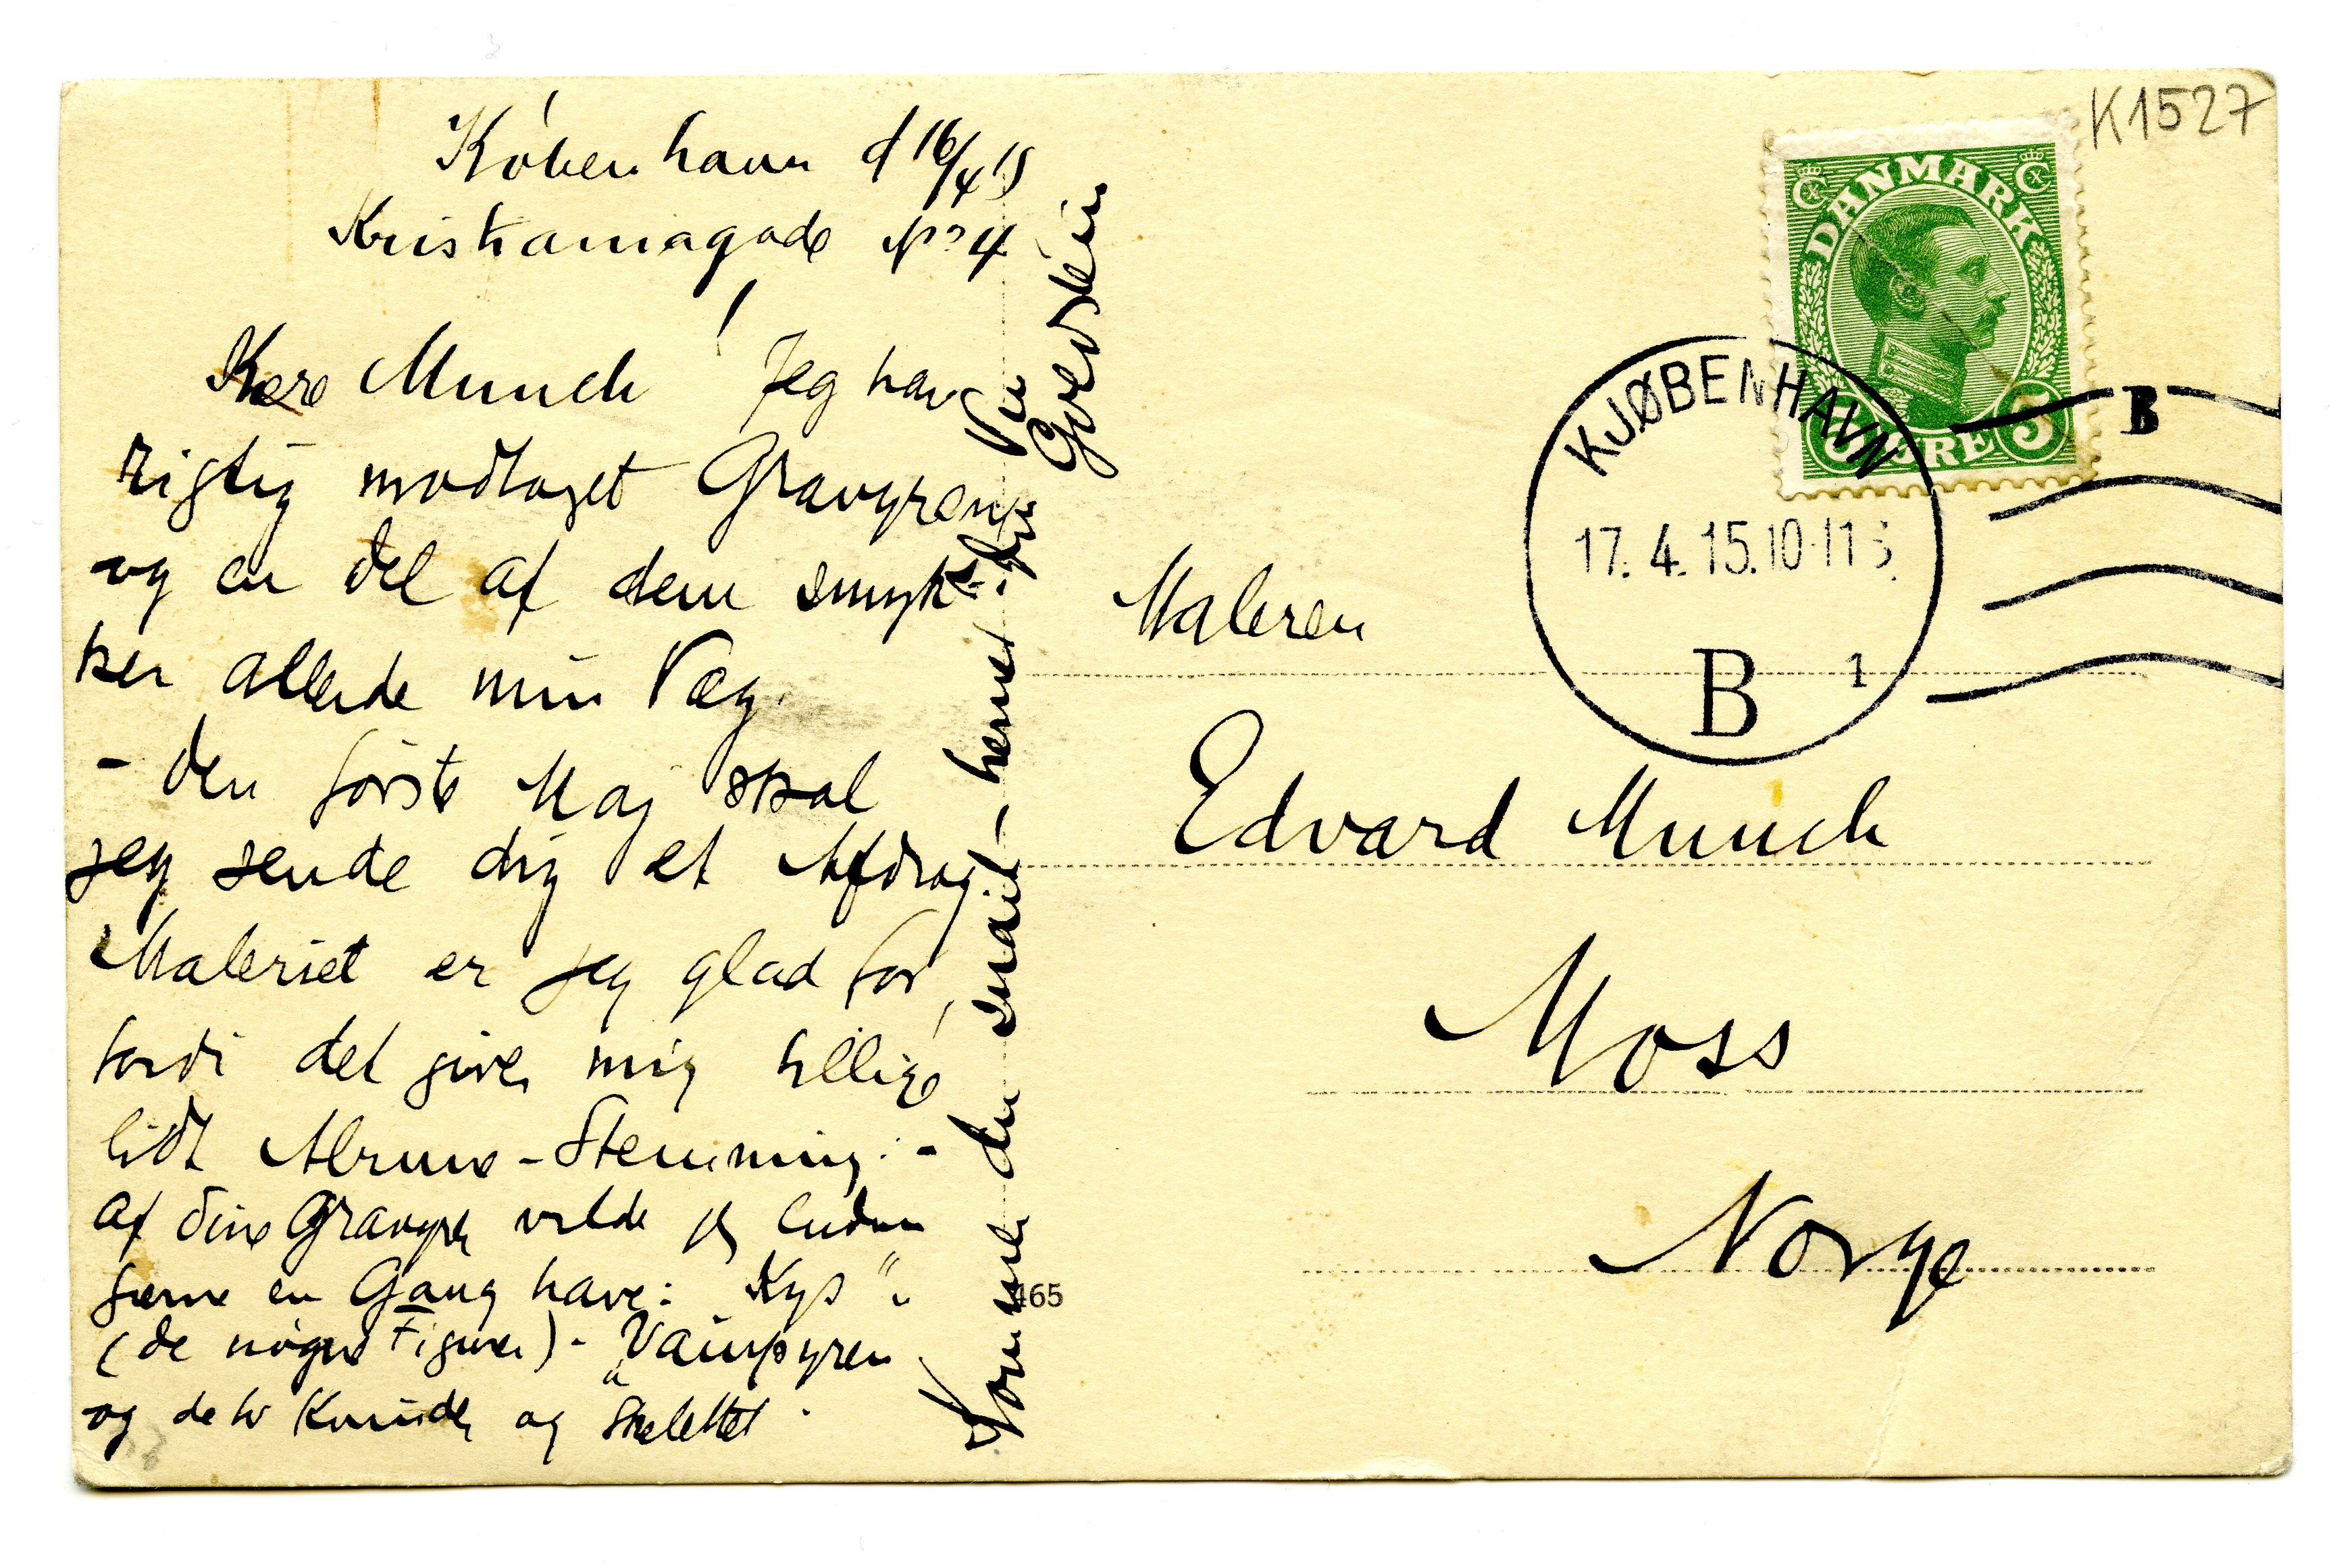 København d 16/4 15
Kristianiagade No 4
Kære Munch! Jeg har
rigtig modtaget Gravyrene
og en del af dem smyk-
ker allerede min Væg.
- den første Maj skal
jeg sende dig et Afdrag.
Maleriet er jeg glad for,
fordi det giver mig tillige
lidt Alrune-Stemning. -
af dine Gravyrer vilde jeg endnu
gerne en Gang have: "Kys"
(de nøgne Figurer) - "Vampyren
og de to Kvinder og Skelettet.
Komme du snart herned. din Ven
Goldstein
K1527
DANMARK
5 ØRE 5
KJØBENHAVN
17. 4. 15. 10-11
B 1
B
Maleren
Edvard Munch
Moss
Norge
465